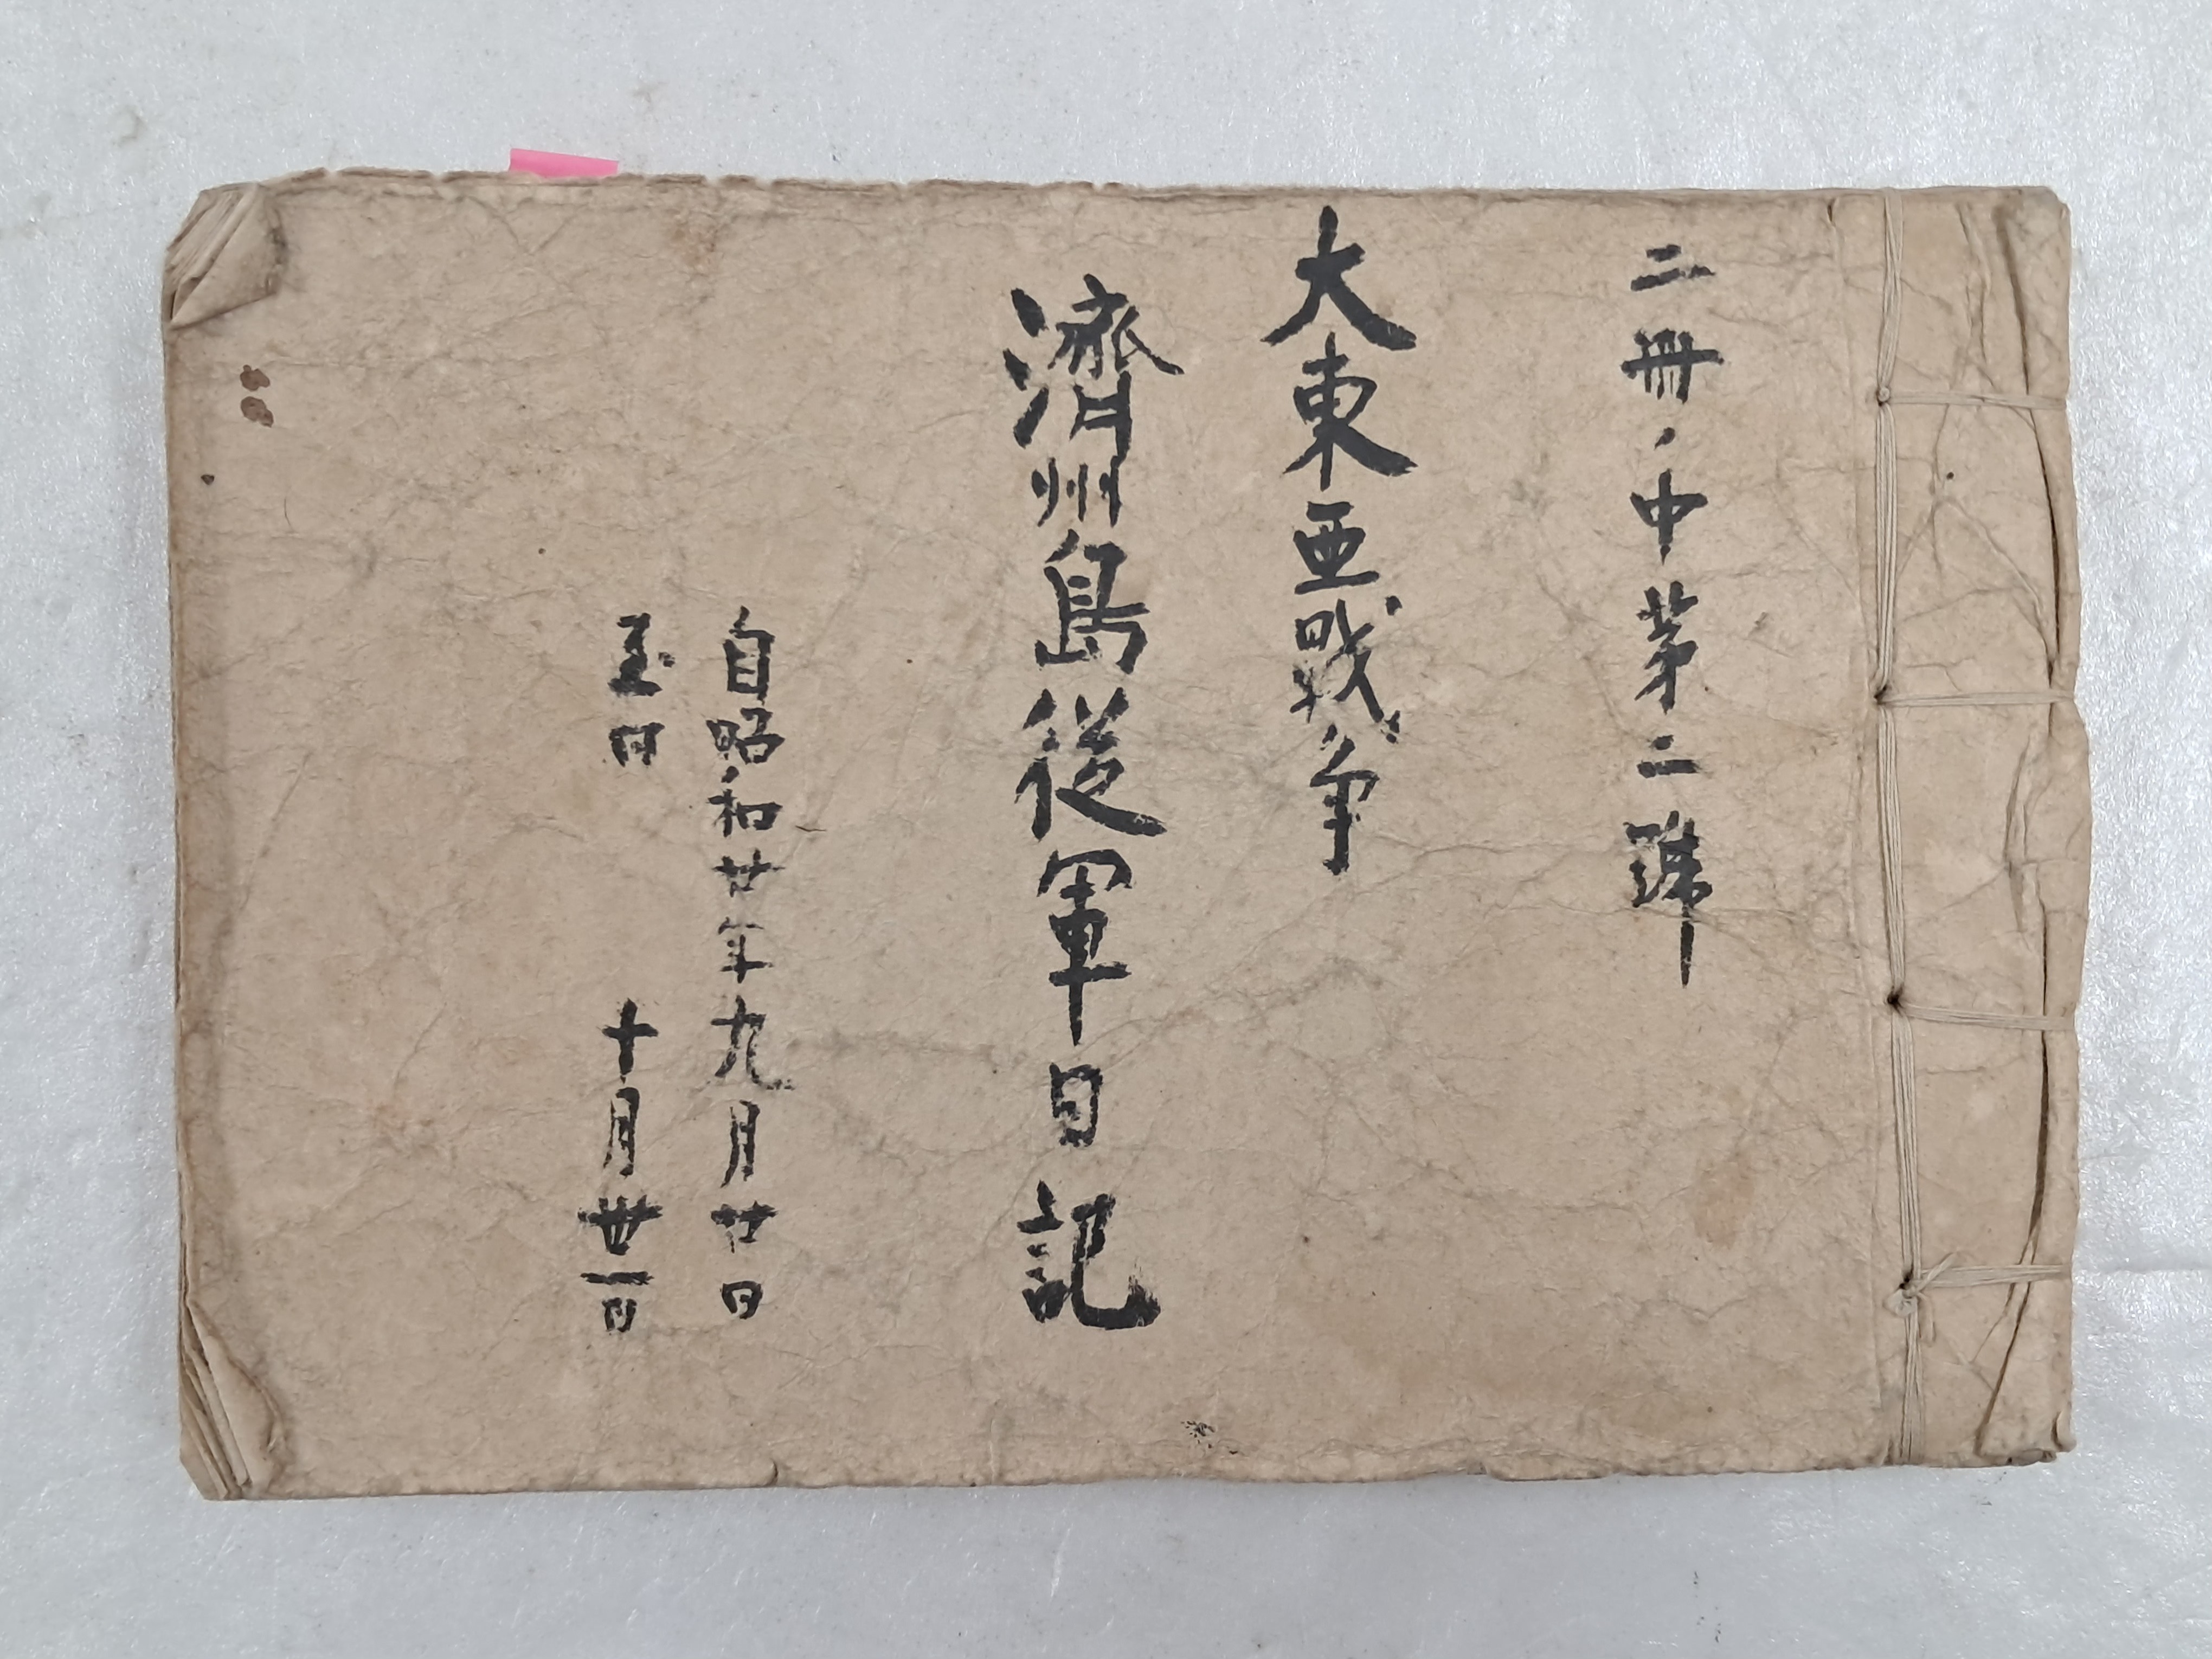 二冊ノ中第二號
大東亜戦争
濟州島従軍日記
自昭和廿年九月廿日
至同 十月卅一日